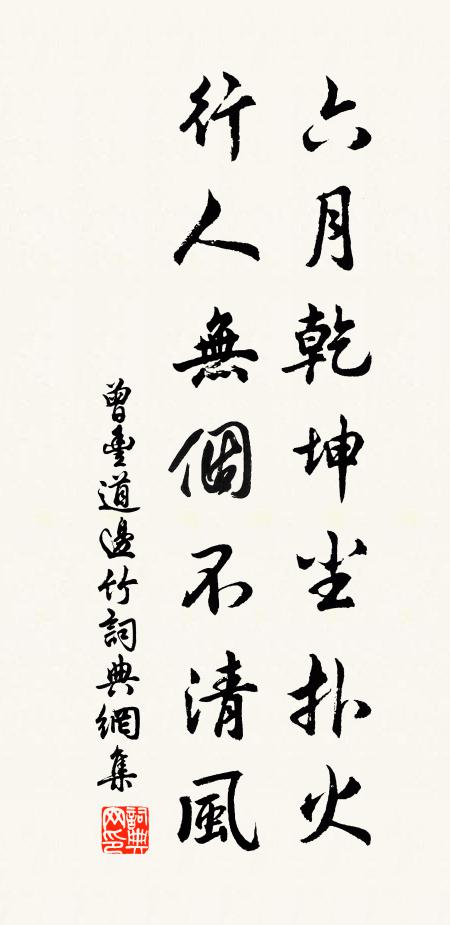 六月乾坤尘扑火
行人無個不清風
曾豊道邊竹詞典網集
詞典网印